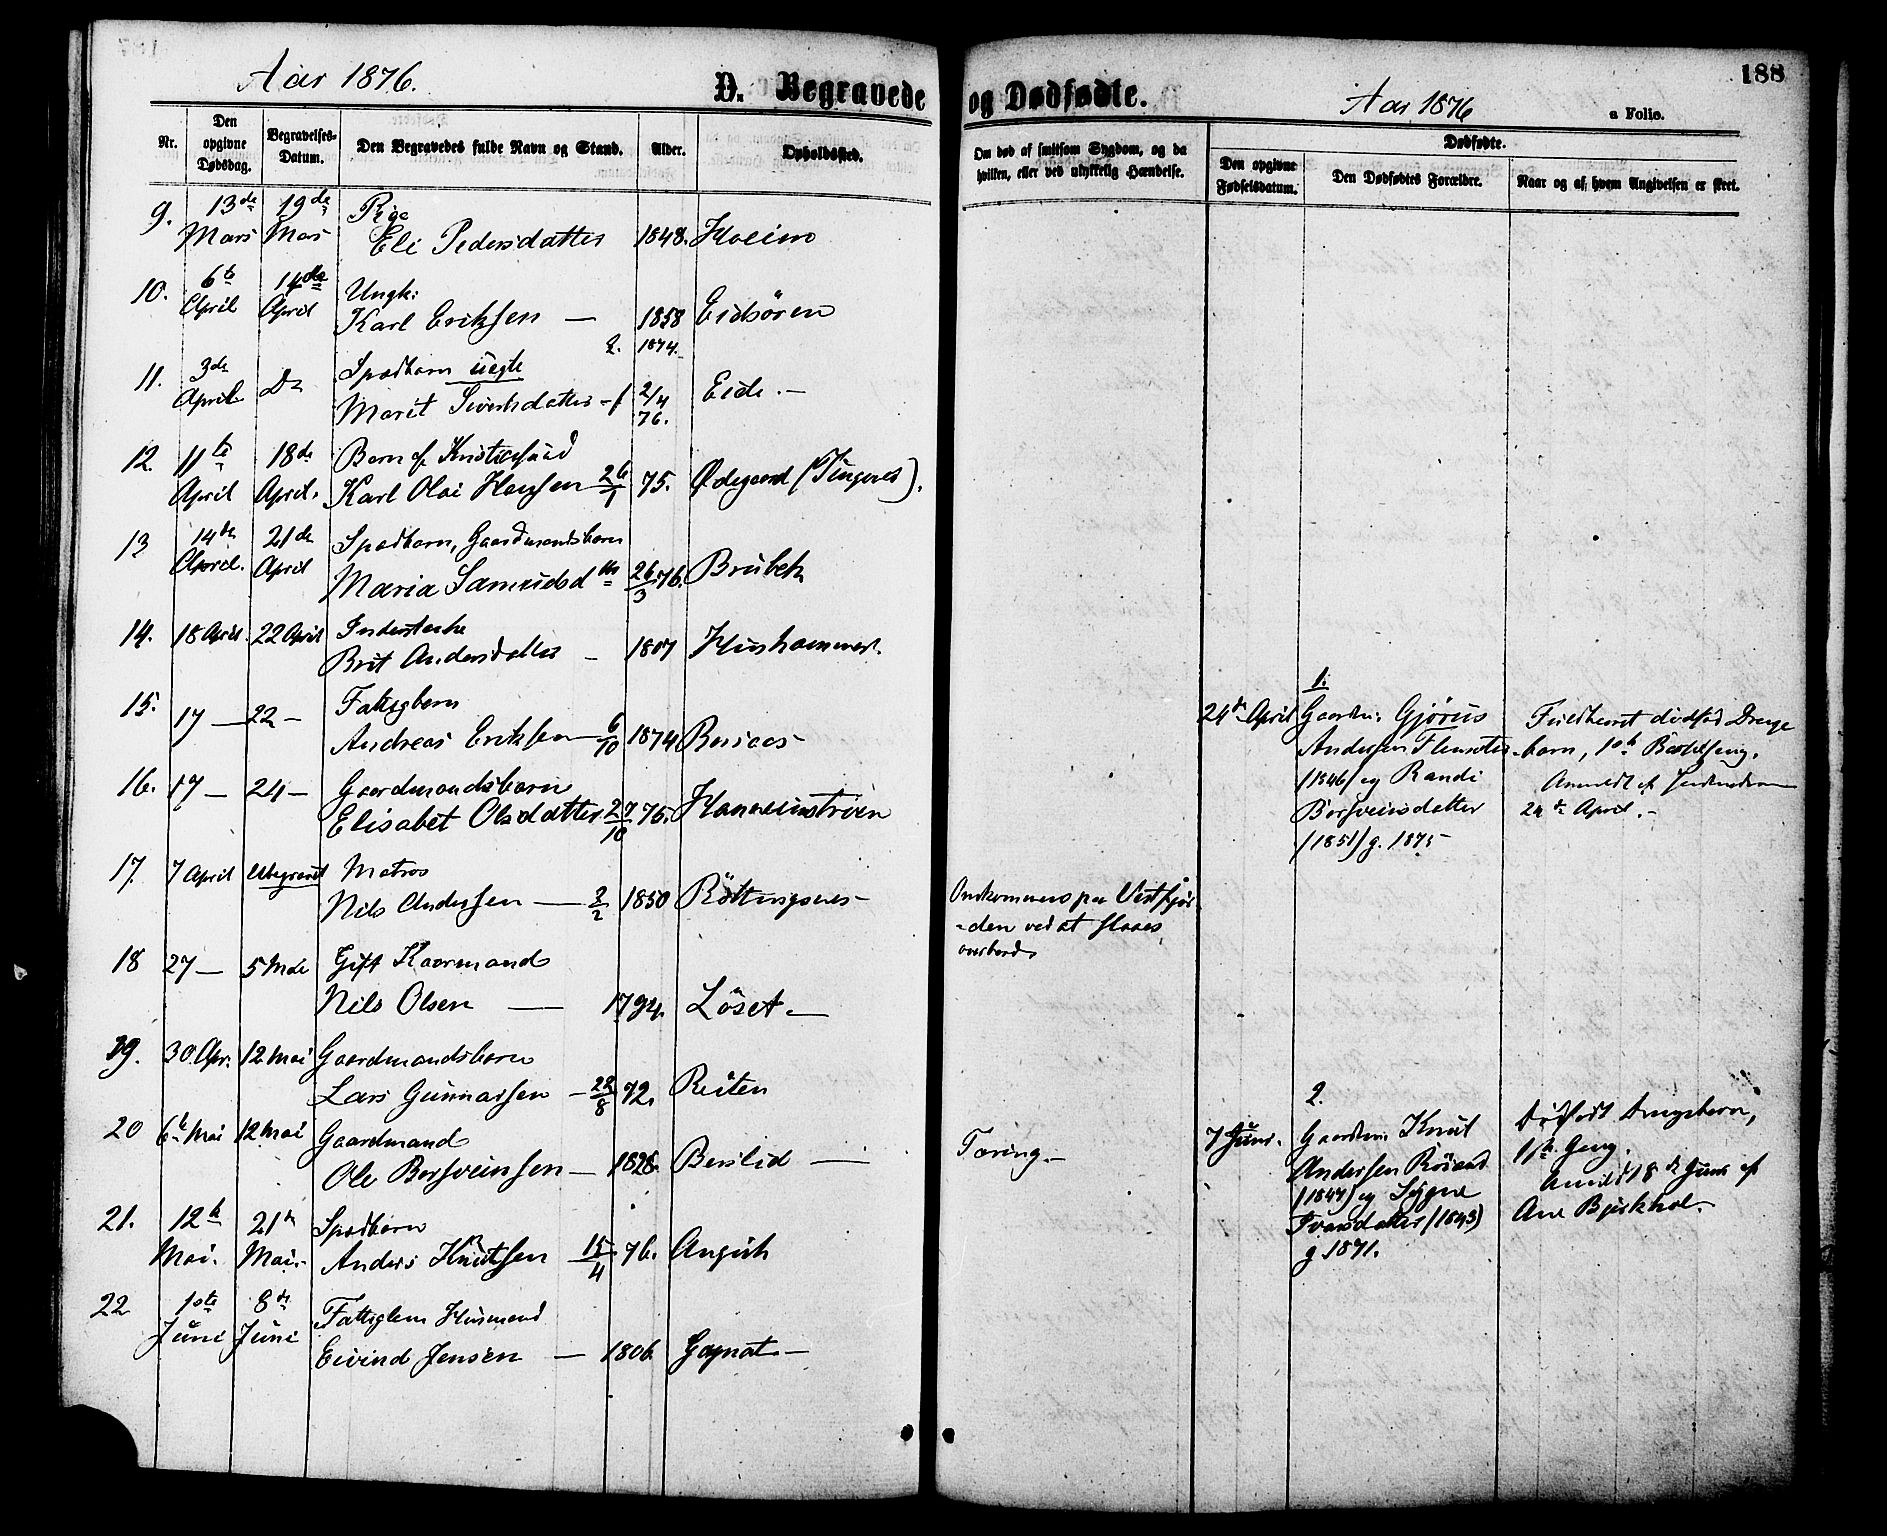 Aar 1876.
D. Begravede
Nr.
Den opgivne Dødsdag.
Begravelses-Datum.
Den Begravedes fulde Navn og Stand.
Alder.
Opholdssted.
9. 13de 19de Pige
Mars Mars Eli Pedersdatter 1848.
10. 6te 14de Ungk:
April April Karl Eriksen — 1858 Eidsören
1874.
11. 3de Do Spædbarn uegte
April Marit Sivertsdatter - f 2/4 76. Eide. —
12. 11te 18de Barn af
April April. Karl Olai Hansen 26/1 75. Ødegaard (Tingvos).
13 14de 21de Spædbarn, Gaardmandsbarn
April. April Maria Samuelsd 26/3 76. Brubek
14. 18 April. 22 April Inderst
Brit Andersdatter — 1807 Hushammer.
15. 17 — 22 — Fattigbarn
Andreas Eriksen 6/10 1874
16. 17 — 24 — Gaardmandsbarn
Elisabet Olsdatter 27/10 75.
17. 7 April Ubegravet Matros
Nils Andersen — 2/2 1850 Röttingsnes —
18 27 — 5 Mai Gift Kaarmand
Nils Olsen — 1794. Löset —
19. 30 Apr. 12 Mai Gaardmandsbarn
Lars Gunnarsen — 22/8 72. Reiten
20 6te Mai 12 Mai Gaardmand
Ole Bersveinsen — 1828. Berslid —
21. 12te 21de Spædbarn
Mai. Mai. Anders Knutsen 15/4 76. Angvik
22 1ste 8de Fattiglem Husmand
Juni Juni Eivind Jensen — 1806.
og Dødfødte.
Aar 1876
188
a Folio.
Om død af smitsom Sygdom, og da hvilken, eller ved ulykkelig Hændelse.
Dødfødte.
Den opgivne Fødselsdatum.
Den Dødfødtes Forældre.
Naar og af hvem Angivelsen er skeet.
1.
24de April Gaardm. Gjörus
Andersen
(1846) og Randi
Bersveinsdatter
(1851) g. 1875
Fuldbaaret dødfød Drenge
barn, 1ste Barselseng.
Anmeldt af
24de April. —
Omkommen paa Vestfjor
-den ved at slaaes
overbord
Tæring. —
2.
7 Juni. Gaardm. Knut
Andersen
(1847) og Sygne
Ivarsdatter (1843)
g 1871.
Dødfødt Drengebarn,
1ste Seng.
Anmeldt 18de Juni af
Ane